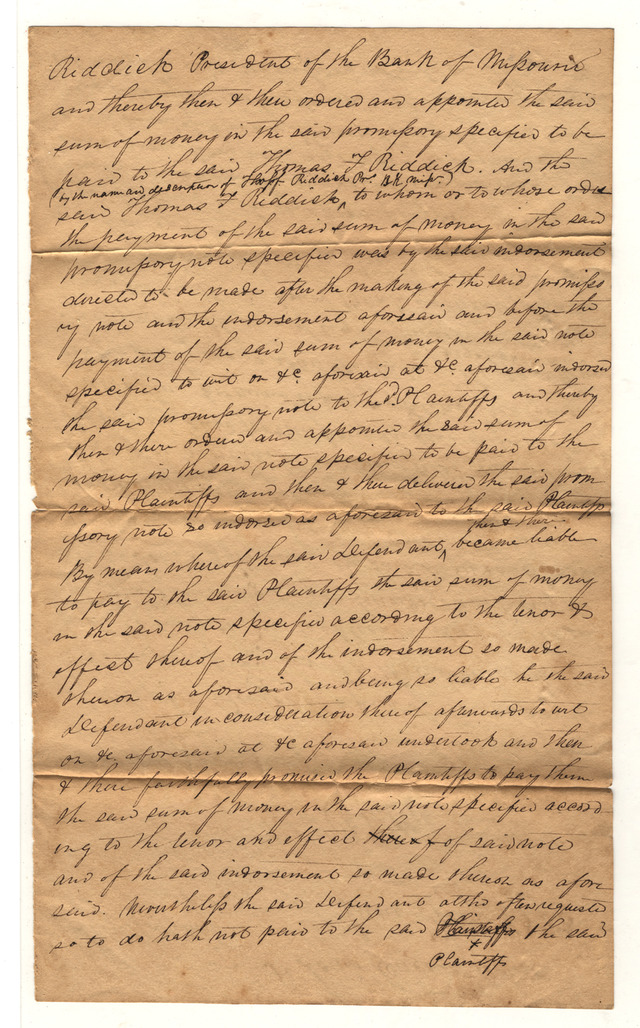 Riddick President of the Bank of Missouri
and thereby then & there ordered and appointed the said
sum of money in the said promissory specified to be
paid to the said Thomas F Riddick. And the
by the name and description of Thos F Riddick Pr. Bk. miss.
said Thomas F Riddick ^ to whom or to whose order
the payment of the said sum of money in the said
promissory note specified was by the said indorsement
directed to be made after the making of the said promiss
ry note and the indorsement aforesaid and before the
payment of the said sum of money in the said note
specified to wit on &c. aforesaid at &c. aforesaid indorsed
the said promissory note to the sd. Plaintiffs and thereby
then & there ordered and appointed the said sum of
money in the said note specified to be paid to the
said Plaintiffs and then & there delivered the said prom
issory note so indorsed as aforesaid to the said Plaintiffs
then & there
By means whereof the said Defendant ^ became liable
to pay to the said Plaintiffs the said sum of money
in the said note specified according to the tenor &
effect thereof and of the indorsement so made
thereon as aforesaid and being so liable he the said
Defendant in consideration thereof afterwards to wit
on &c. aforesaid at &c aforesaid undertook and then
& there faithfully promised the Plaintiffs to pay them
the said sum of money in the said note specified accord
ing to the tenor and effect thereof of said note
and of the said indorsement so made thereon as afore
said. Nevertheless the said Defendant altho often requested
so to do hath not paid to the said Plaintiffs the said
+
Plaintiffs